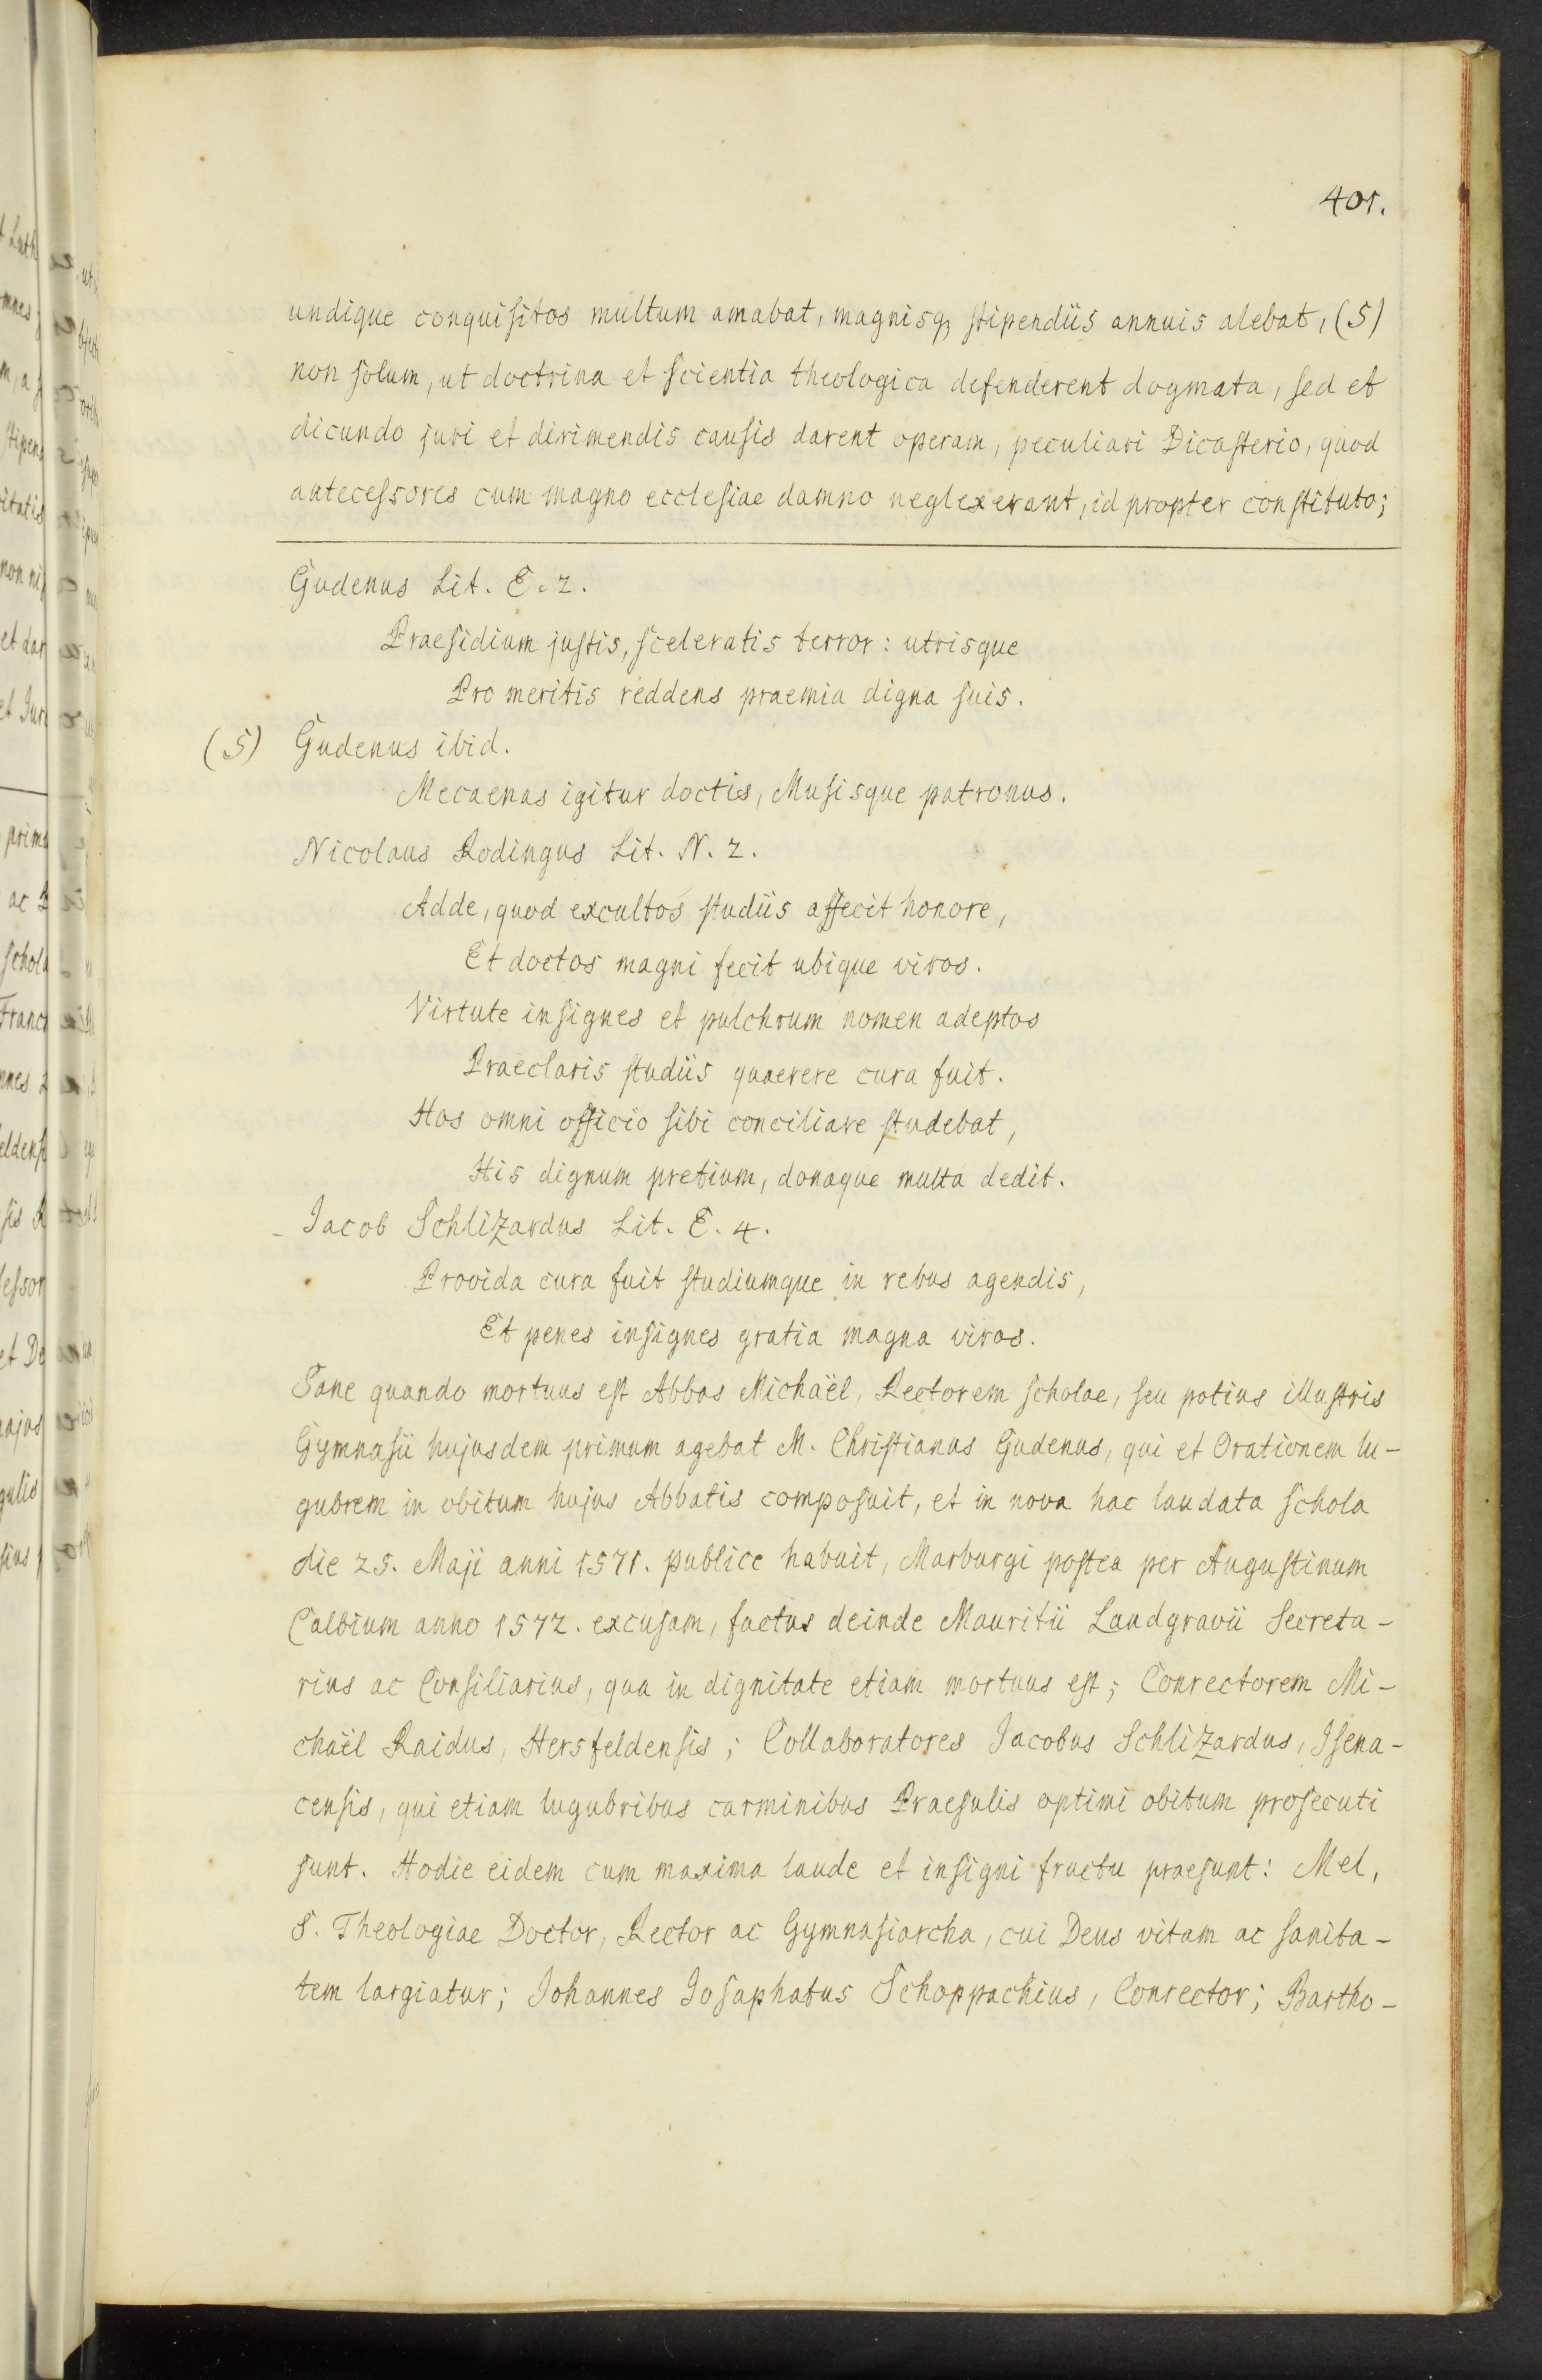 401.
undique conquiſitos multum amabat, magnisqꝫ ſtipendiis annuis alebat, (5)
non ſolum, ut doctrina et ſcientia theologica defenderent dogmata, ſed et
dicundo juri et dirimendis cauſis darent operam, peculiari Dicaſterio, quod
antecesſores cum magno eccleſiae damno neglexerant, id propter conſtituto;
Gudenus Lit. E. 2.
Praeſidium juſtis, ſceleratis terror: utrisque
Pro meritis reddens praemia digna ſuis.
(5) Gudenus ibid.
Mecaenas igitur doctis, Muſisque patronus.
Nicolaus Rodingus Lit. N. 2.
Adde, quod excultos ſtudiis affecit honore,
Et doctos magni fecit ubique viros.
Virtute inſignes et pulchrum nomen adeptos
Praeclaris ſtudiis quaerere cura fuit.
Hos omni officio ſibi conciliare ſtudebat,
His dignum pretium, donaque multa dedit.
Jacob Schlizardus Lit. E. 4.
Provida cura fuit ſtudiumque in rebus agendis,
Et penes inſignes gratia magna viros.
Sane quando mortuus eſt Abbas Michaël, Rectorem ſcholae, ſeu potius illuſtris
Gymnaſii hujusdem primum agebat M. Chriſtianus Gudenus, qui et Orationem lu-
gubrem in obitum hujus Abbatis compoſuit, et in nova hac laudata ſchola
die 25. Maji anni 1571. publice habuit, Marburgi poſtea per Auguſtinum
Colbium anno 1572. excuſam, factus deinde Mauritii Landgravii Secreta-
rius ac Conſiliarius, qua in dignitate etiam mortuus eſt; Conrectorem Mi-
chaël Raidus, Hersfeldenſis; Collaboratores Jacobus Schlizardus, Iſena-
cenſis, qui etiam lugubribus carminibus Praeſulis optimi obitum proſecuti
ſunt. Hodie eidem cum maxima laude et inſigni fructu praeſunt: Mel,
S. Theologiae Doctor, Rector ac Gymnaſiarcha, cui Deus vitam ac ſanita-
tem largiatur; Johannes Joſaphatus Schoppachius, Conrector; Bartho-